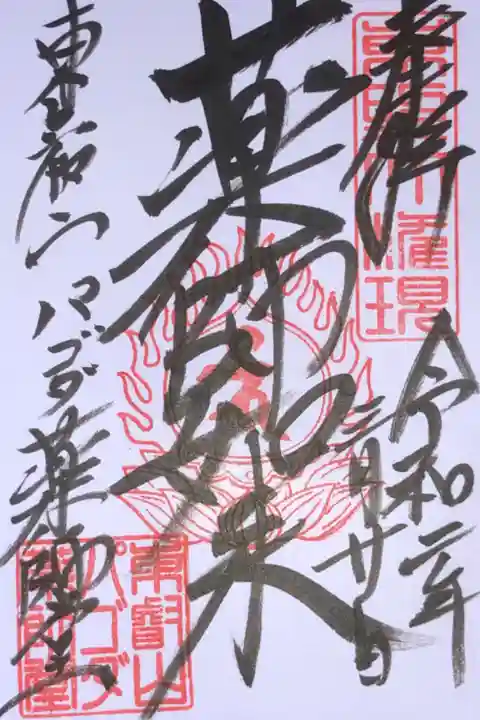 奉拝
令和二年
三月廿日
薬師如来
東叡山パゴダ薬師堂
東叡山
パゴダ
薬師堂